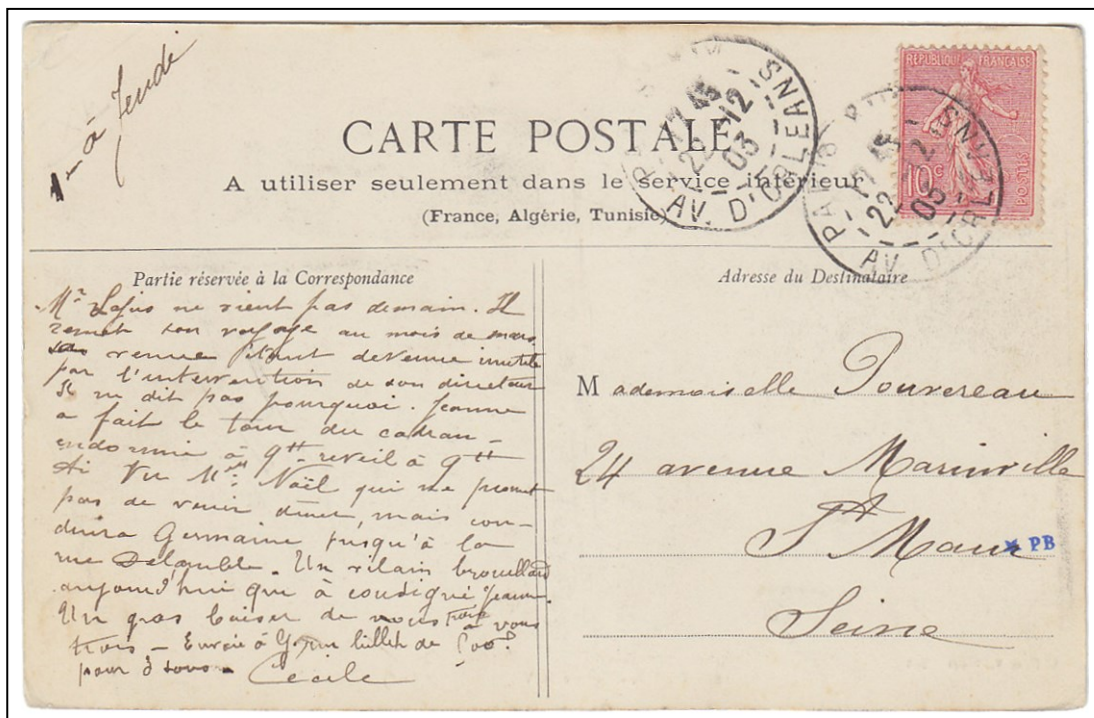 1 - à Jeudi
CARTE POSTALE
A utiliser seulement dans le service intérieur
(France, Algérie, Tunisie)
PARIS
17 45
22 - 12
03
AV. D'ORLEANS
RÉPUBLIQUE FRANÇAISE
10c
POSTES
PARIS
17 45
22 - 12
03
AV. D'ORLEANS
Partie réservée à la Correspondance
Mr ne vient pas demain. Il
remet son voyage au mois de mars
sa venue étant devenue inutile
par l'intervention de son directeur
Il ne dit pas pourquoi. Jeanne
a fait le tour du cadran -
endormie à 9h reveil à 9h
Ai Vu Mme Naël qui ne promet
pas de venir diner, mais con-
duira Germaine jusqu'à la
rue Delambre. Un vilain brouillard
aujourd'hui que à consigné Jeanne.
Un gros baiser de nous trois à vous
trois - Envoie à un billet de
pour 3 sous -
Cécile
Adresse du Destinataire
Mademoiselle Pouvereau
24 avenue Marinville
St Maur
PB
Seine